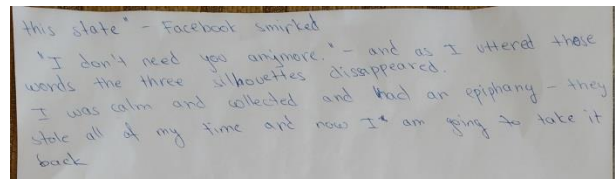 this state" - Facebook smirked
"I don't need you anymore." - and as I uttered those
words the three silhouettes disappeared.
I was calm and collected and had an epiphany - they
stole all of my time and now I am going to take it
back